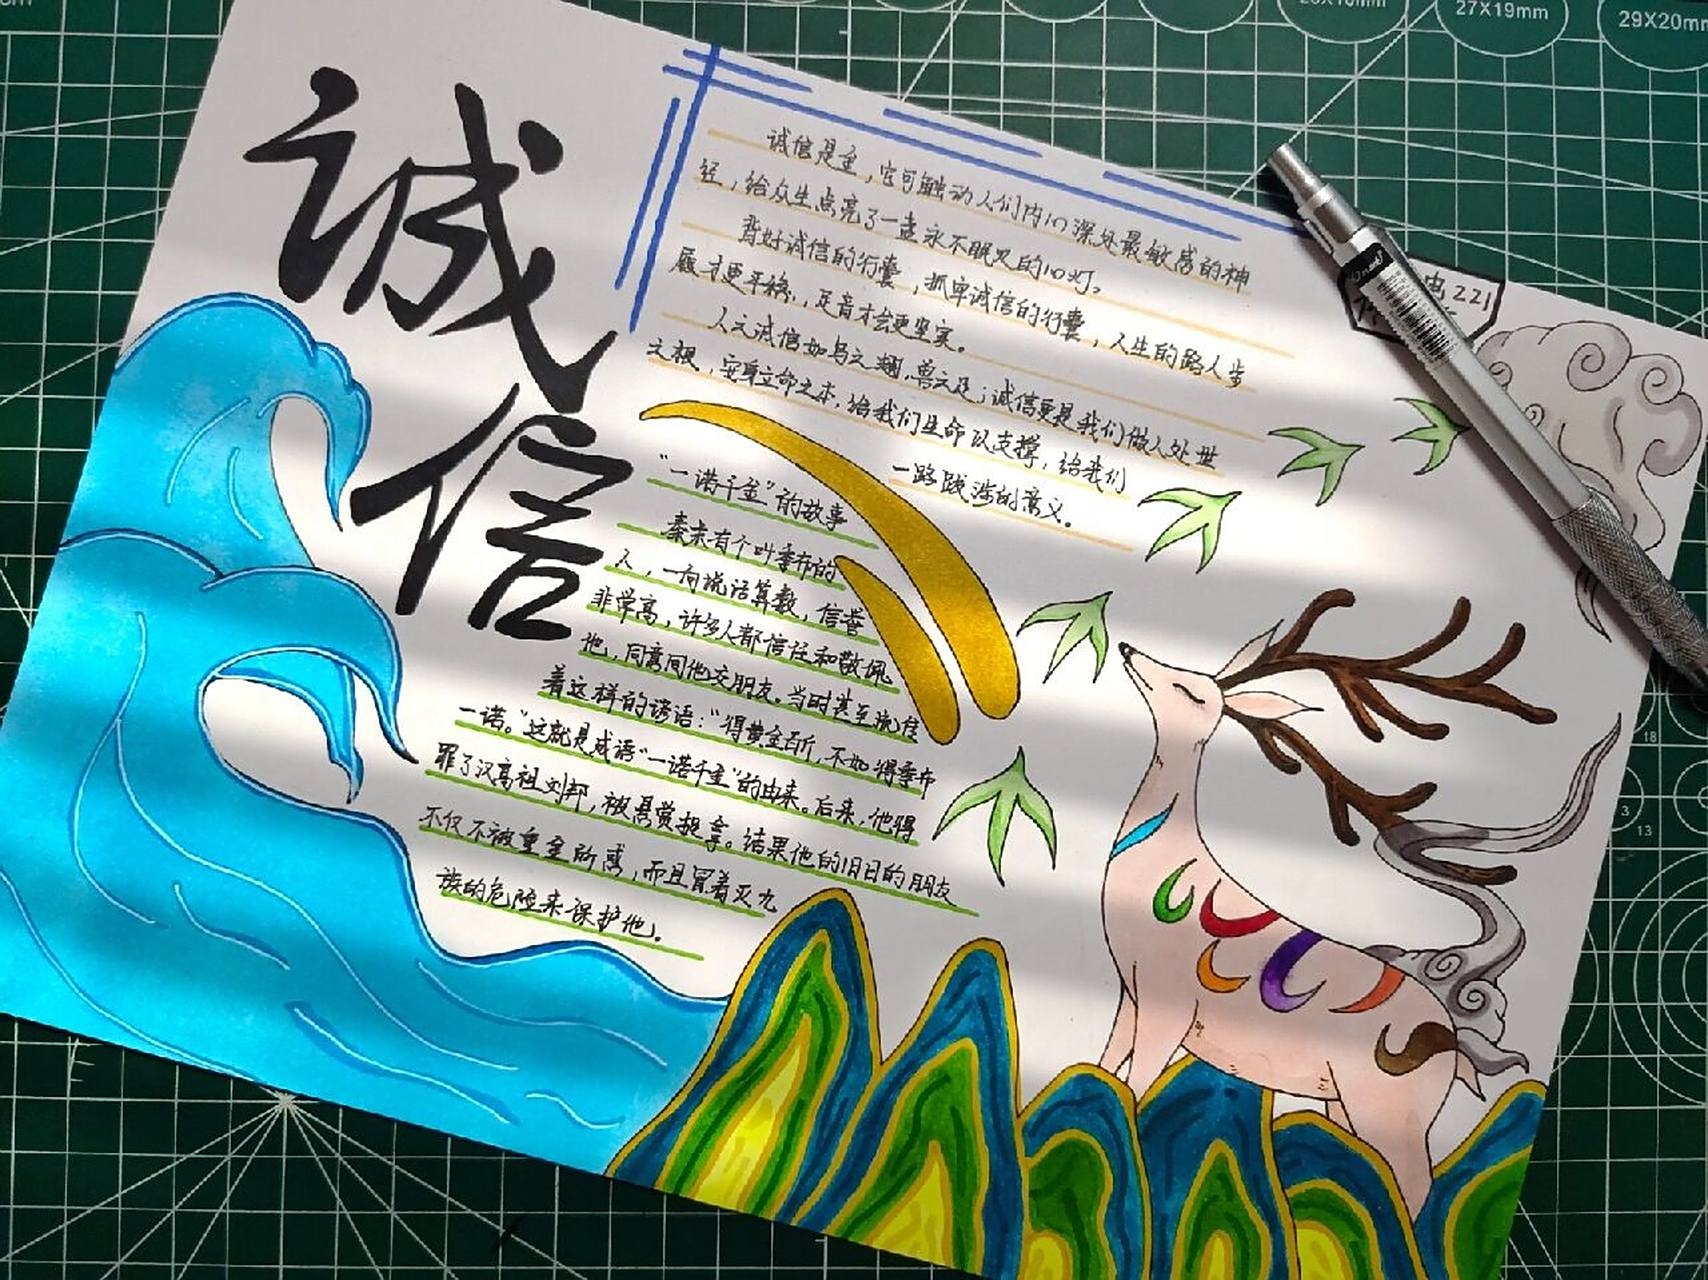 诚信
诚信是金，它可触动人们内心深处最敏感的神
经，给众生点亮了一盏永不眠灭的心灯。
背好诚信的行囊，抓牢诚信的行囊，人生的路人步
履才更平稳，足音才会更坚实。
人之诚信如鸟之翅，兽之足；诚信更是我们做人处世
之根，安身立命之本，给我们生命以支撑，给我们
一路跋涉的意义。
“一诺千金”的故事
秦末有个叫季布的
人，一向说话算数，信誉
非常高，许多人都信任和敬佩
他，同意同他交朋友。当时甚至流传
着这样的谚语：“得黄金百斤，不如得季布
一诺。”这就是成语“一诺千金”的由来。后来，他得
罪了汉高祖刘邦，被悬赏捉拿。结果他的旧日的朋友
不仅不被重金所惑，而且冒着灭九
族的危险来保护他。
221
27X19mm
29X20mm
18
3
13